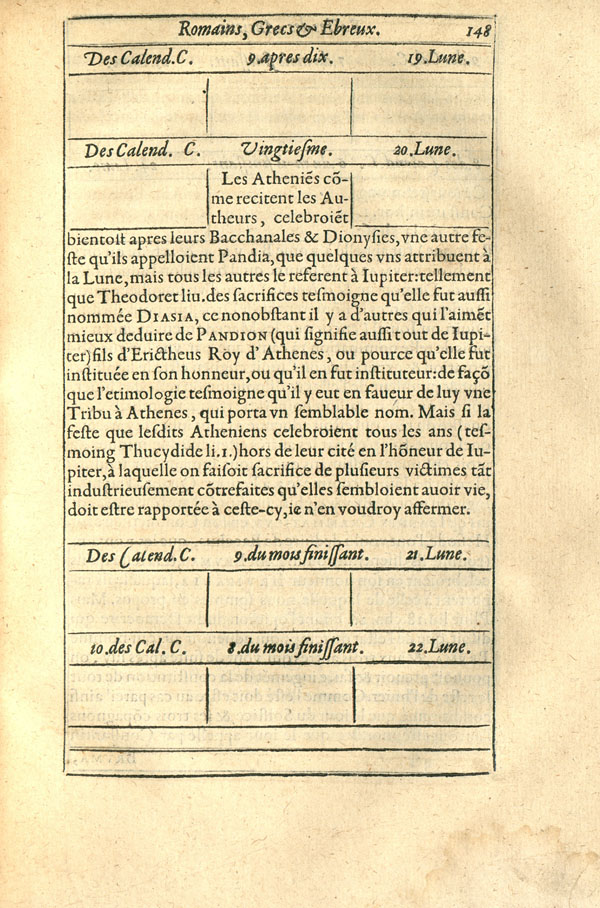 Romains, Grecs & Ebreux. 148
Des Calend. C. 9. apres dix. 19. Lune.
Des Calend. C. Vingtieſme. 20. Lune.
Les Atheniẽs cõ-
me recitent les Au-
theurs, celebroiẽt
bientoſt apres leurs Bacchanales & Dionyſies, vne autre fe-
ſte qu'ils appelloient Pandia, que quelques vns attribuent à
la Lune, mais tous les autres le referent à Iupiter: tellement
que Theodoret liu. des ſacrifices teſmoigne qu'elle fut auſſi
nommée DIASIA, ce nonobſtant il y a d'autres qui l'aimẽt
mieux deduire de PANDION (qui ſignifie auſſi tout de Iupi-
ter) fils d'Erictheus Roy d'Athenes, ou pource qu'elle fut
inſtituée en ſon honneur, ou qu'il en fut inſtituteur: de façõ
que l'etimologie teſmoigne qu'il y eut en faueur de luy vne
Tribu à Athenes, qui porta vn ſemblable nom. Mais ſi la
feſte que leſdits Atheniens celebroient tous les ans (teſ-
moing Thucydide li. 1.) hors de leur cité en l'hõneur de Iu-
piter, à laquelle on faiſoit ſacrifice de pluſieurs victimes tãt
induſtrieuſement cõtrefaites qu'elles ſembloient auoir vie,
doit eſtre rapportée à ceſte-cy, ie n'en voudroy affermer.
Des Calend. C. 9. du mois finiſſant. 21. Lune.
10. des Cal. C. 8. du mois finiſſant. 22. Lune.